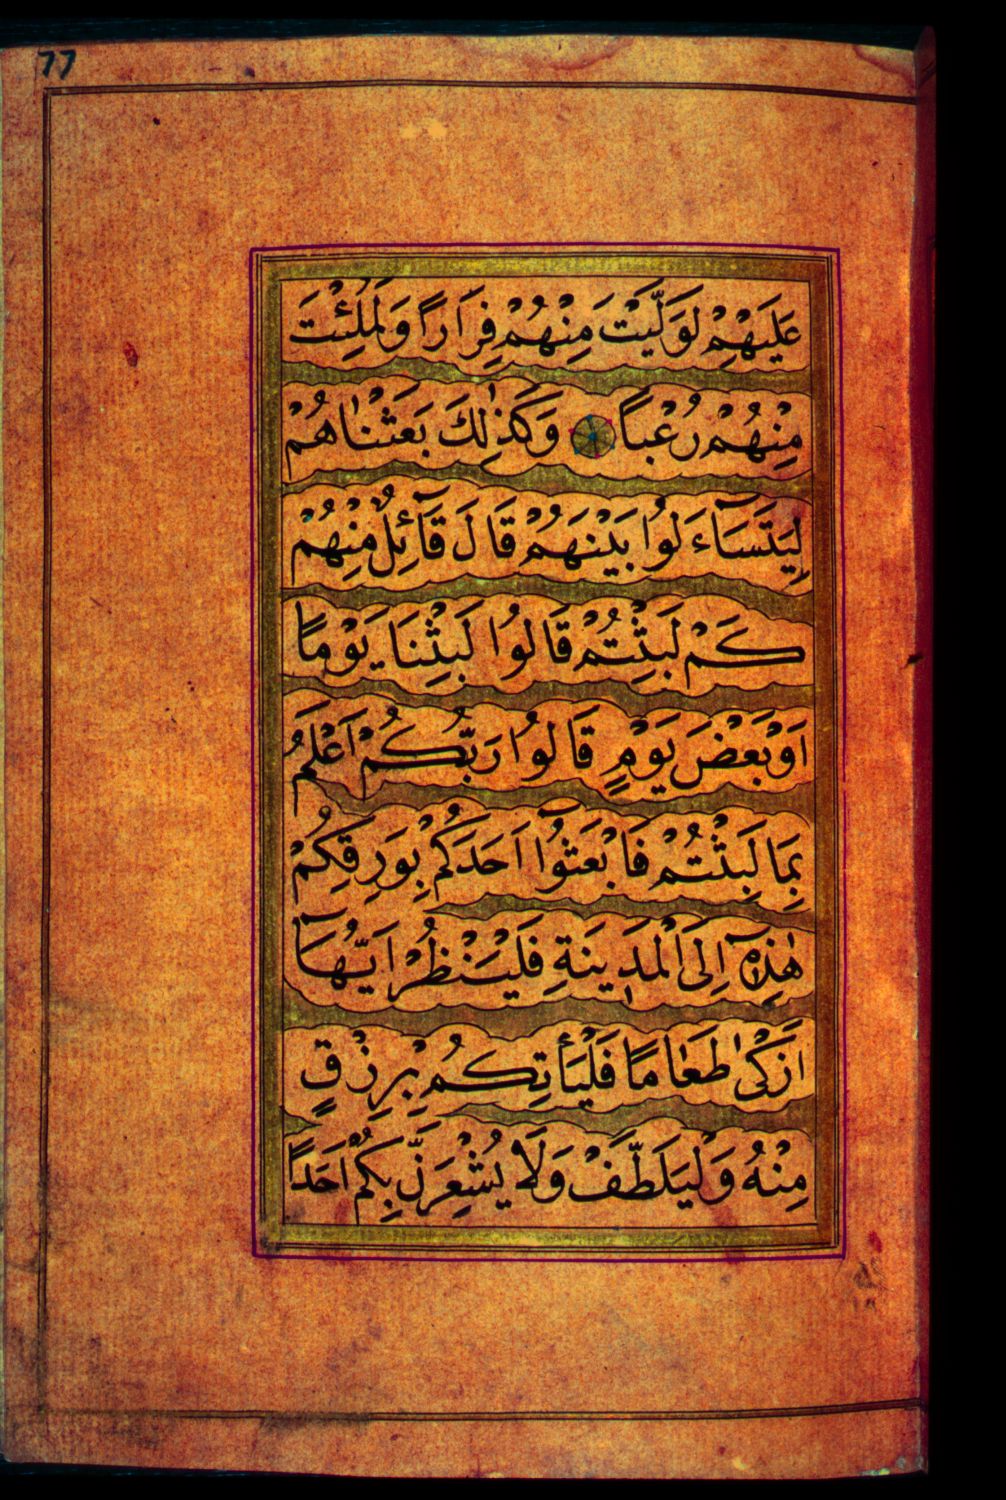 77
عَلَيْهِمْ لَوَلَّيْتَ مِنْهُمْ فِرَارًا وَلَمُلِئْتَ
مِنْهُمْ رُعْبًا وَكَذٰلِكَ بَعَثْنَاهُمْ
لِيَتَسَآءَلُوا بَيْنَهُمْ قَالَ قَآئِلٌ مِنْهُمْ
كَمْ لَبِثْتُمْ قَالُوا لَبِثْنَا يَوْمًا
اَوْ بَعْضَ يَوْمٍ قَالُوا رَبُّكُمْ اَعْلَمُ
بِمَا لَبِثْتُمْ فَابْعَثُوٓا اَحَدَكُمْ بِوَرِقِكُمْ
هٰذِهٖٓ اِلَى الْمَدِينَةِ فَلْيَنْظُرْ اَيُّهَآ
اَزْكٰى طَعَامًا فَلْيَأْتِكُمْ بِرِزْقٍ
مِنْهُ وَلْيَتَلَطَّفْ وَلَا يُشْعِرَنَّ بِكُمْ اَحَدًا